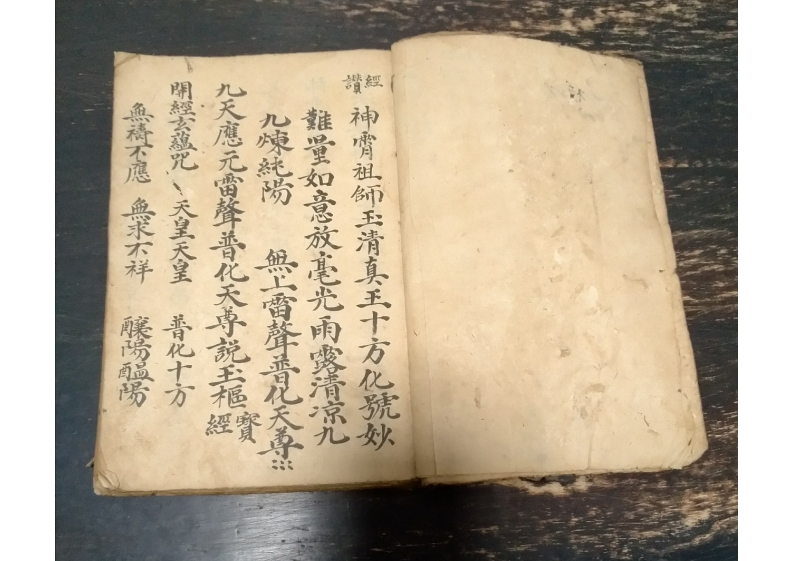 經讚
神霄祖師玉清真王十方化號妙
難量如意放毫光雨露清凉九
九煉純陽 無上雷聲普化天尊
九天應元雷聲普化天尊說玉樞寶經
開經玄蘊咒 天皇天皇 普化十方
無禱不應 無求不祥 釀陽醞陽